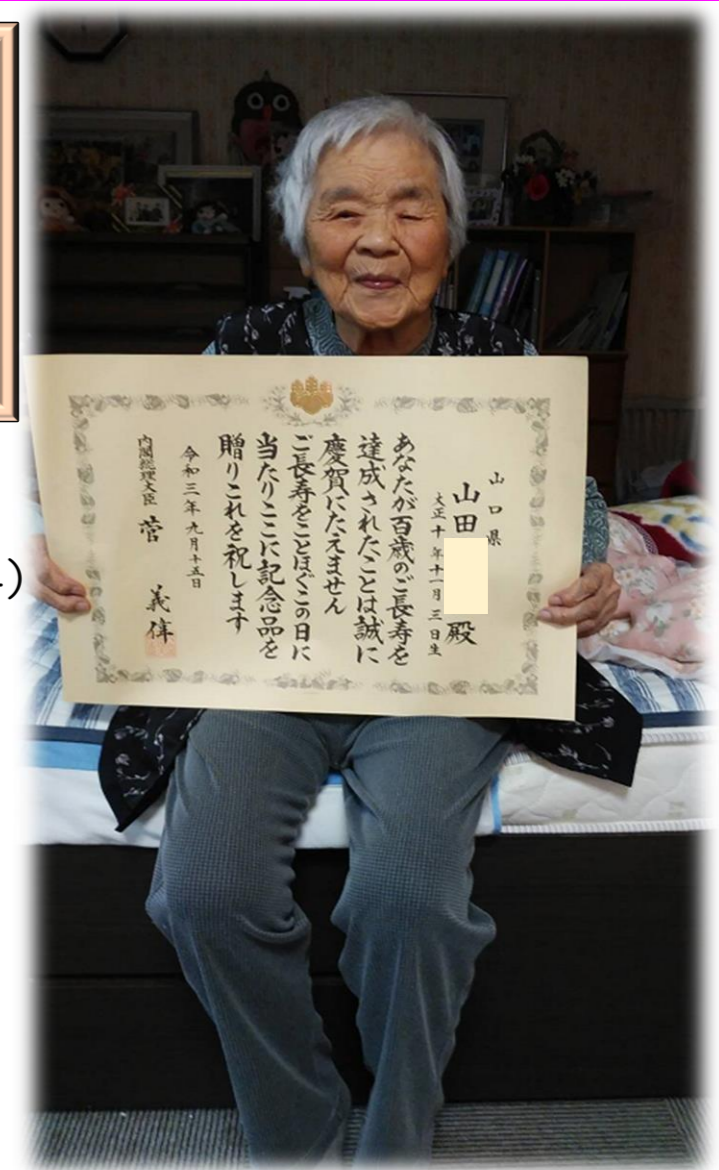 山口県
山田 殿
大正十年十一月三日生
あなたが百歳のご長寿を
達成されたことは誠に
慶賀にたえません
ご長寿をことほぐこの日に
当たりここに記念品を
贈りこれを祝します
令和三年九月十五日
内閣総理大臣 菅 義偉
)